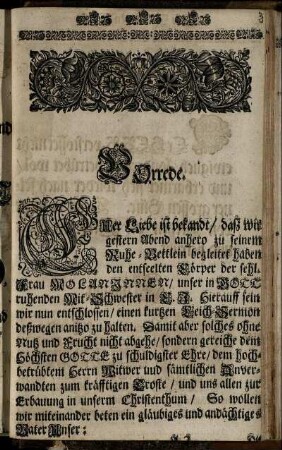 Vorrede.
EUer Liebe ist bekandt / daß wir
gestern Abend anhero zu seinem
Ruhe-Bettlein begleitet haben
den entseelten Cörper der sehl.
Frau MOLANINNEN / unser in GOTT
ruhenden Mit-Schwester in C. J. Hierauff sein
wir nun entschlossen / einen kurtzen Leich-Sermon
deßwegen anitzo zu halten. Damit aber solches ohne
Nutz und Frucht nicht abgehe / sondern gereiche dem
Höchsten GOTTE zu schuldigster Ehre / dem hoch-
betrübtem Herrn Witwer und sämtlichen Anver-
wandten zum kräfftigen Troste / und uns allen zur
Erbauung in unserm Christenthum / So wollen
wir miteinander beten ein gläubiges und andächtiges
Vater Unser: